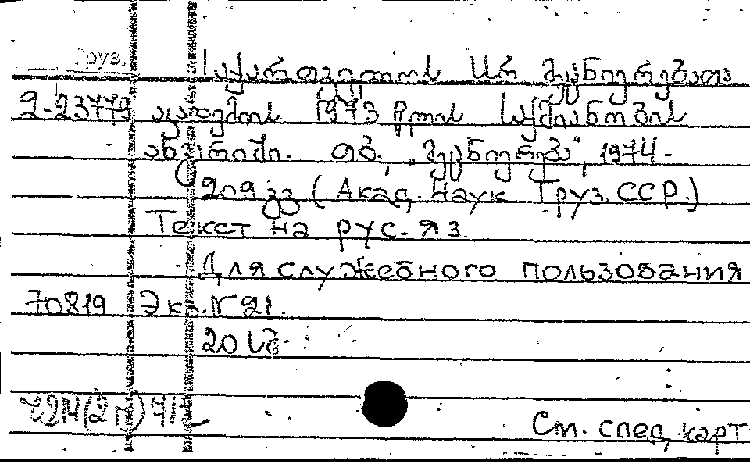 Груз.
საქართველოს სსრ მეცნიერებათა
2-23779 აკადემიის 1973 წლის საქმიანობის
ანგარიში. თბ., „მეცნიერება“, 1974-
209 გვ. (Акад. Наук Груз. ССР.)
Текст на рус. яз.
Для служебного пользования
70819 Экз. N 21.
20 სმ.
См. спец. карт